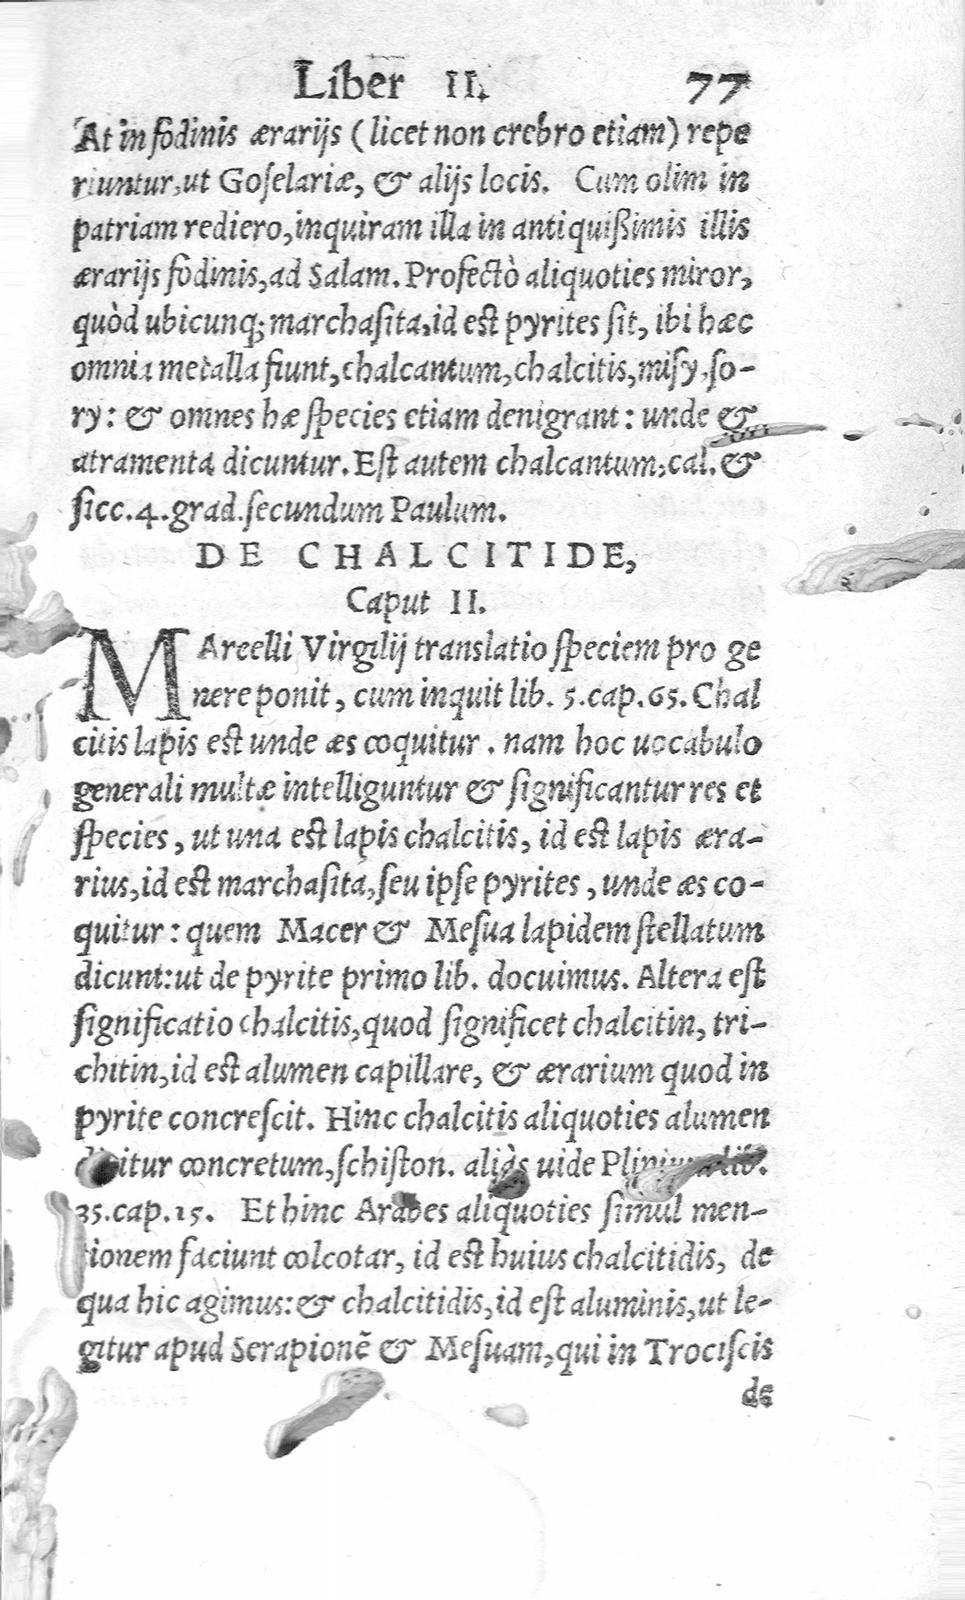 Liber II. 77
At in fodinis ærarijs (licet non crebro etiam) repe
riuntur, ut Goſelariæ, & alijs locis. Cum olim in
patriam rediero, inquiram illa in antiquißimis illis
ærarijs fodinis, ad Salam. Profectò aliquoties miror,
quòd ubicunq; marchaſita, id est pyrites ſit, ibi hæc
omnia metalla fiunt, chalcantum, chalcitis, miſy, ſo-
ry: & omnes hæ ſpecies etiam denigrant: unde &
atramenta dicuntur. Eſt autem chalcantum, cal. &
ſicc. 4. grad. ſecundum Paulum.
DE CHALCITIDE,
Caput II.
MArcelli Virgilij translatio ſpeciem pro ge
nere ponit, cum inquit lib. 5. cap. 65. Chal
citis lapis est unde æs coquitur. nam hoc uocabulo
generali multæ intelliguntur & ſignificantur res et
ſpecies, ut una est lapis chalcitis, id est lapis æra-
rius, id est marchaſita, ſeu ipſe pyrites, unde æs co-
quitur: quem Macer & Meſua lapidem ſtellatum
dicunt: ut de pyrite primo lib. docuimus. Altera eſt
ſignificatio chalcitis, quod ſignificet chalcitin, tri-
chitin, id est alumen capillare, & ærarium quod in
pyrite concreſcit. Hinc chalcitis aliquoties alumen
dicitur concretum, ſchiſton. aliàs uide Plinium lib.
35. cap. 15. Et hinc Arabes aliquoties ſimul men-
tionem faciunt colcotar, id est huius chalcitidis, de
qua hic agimus: & chalcitidis, id eſt aluminis, ut le-
gitur apud Serapionē & Meſuam, qui in Trociſcis
de